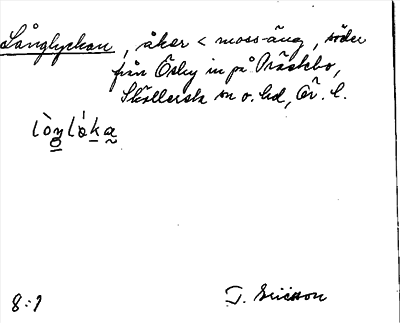 Långlyckan, åker < moss-äng, söder
från Ösby in på Prästbo,
Skállersta sn o. hd, Ör. l.
lòŋlə́ka
8:9
T. Ericsson